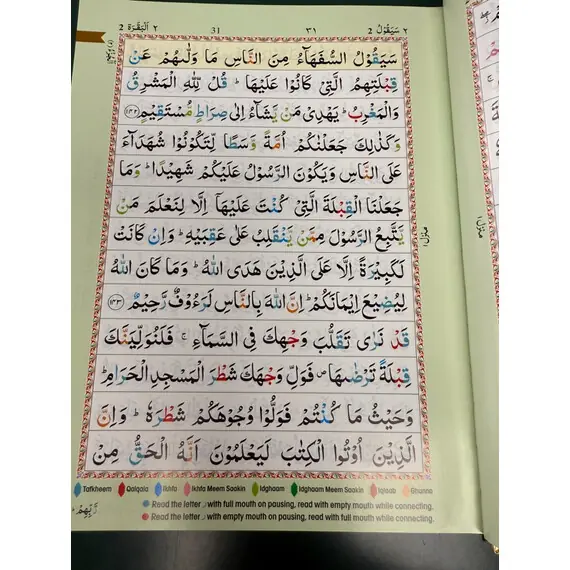 ٢ اَلْبَقَرَة 2 ٣١ 31 ٢ سَيَقُوْلُ 2
سَيَقُوْلُ السُّفَهَآءُ مِنَ النَّاسِ مَا وَلّٰىهُمْ عَنْ
قِبْلَتِهِمُ الَّتِىْ كَانُوْا عَلَيْهَا ؕ قُلْ لِّلّٰهِ الْمَشْرِقُ
وَالْمَغْرِبُ ؕ يَهْدِىْ مَنْ يَّشَآءُ اِلٰى صِرَاطٍ مُّسْتَقِيْمٍ ﴿١٤٢﴾
وَكَذٰلِكَ جَعَلْنٰكُمْ اُمَّةً وَّسَطًا لِّتَكُوْنُوْا شُهَدَآءَ
عَلَى النَّاسِ وَيَكُوْنَ الرَّسُوْلُ عَلَيْكُمْ شَهِيْدًا ؕ وَمَا
جَعَلْنَا الْقِبْلَةَ الَّتِىْ كُنْتَ عَلَيْهَآ اِلَّا لِنَعْلَمَ مَنْ
يَّتَّبِعُ الرَّسُوْلَ مِمَّنْ يَّنْقَلِبُ عَلٰى عَقِبَيْهِ ؕ وَاِنْ كَانَتْ
لَكَبِيْرَةً اِلَّا عَلَى الَّذِيْنَ هَدَى اللّٰهُ ؕ وَمَا كَانَ اللّٰهُ
لِيُضِيْعَ اِيْمَانَكُمْ ؕ اِنَّ اللّٰهَ بِالنَّاسِ لَرَءُوْفٌ رَّحِيْمٌ ﴿١٤٣﴾
قَدْ نَرٰى تَقَلُّبَ وَجْهِكَ فِى السَّمَآءِ ۚ فَلَنُوَلِّيَنَّكَ
قِبْلَةً تَرْضٰىهَا ۪ فَوَلِّ وَجْهَكَ شَطْرَ الْمَسْجِدِ الْحَرَامِ ؕ
وَحَيْثُ مَا كُنْتُمْ فَوَلُّوْا وُجُوْهَكُمْ شَطْرَهٗ ؕ وَاِنَّ
الَّذِيْنَ اُوْتُوا الْكِتٰبَ لَيَعْلَمُوْنَ اَنَّهُ الْحَقُّ مِنْ
رَّبِّهِمْ ؕ
منزل ١
منزل ١
Tafkheem Qalqala Ikhfa Ikhfa Meem Saakin Idghaam Idghaam Meem Saakin Iqlab Ghunna
Read the letter ر with full mouth on pausing, read with empty mouth while connecting.
Read the letter ر with empty mouth on pausing, read with full mouth while connecting.